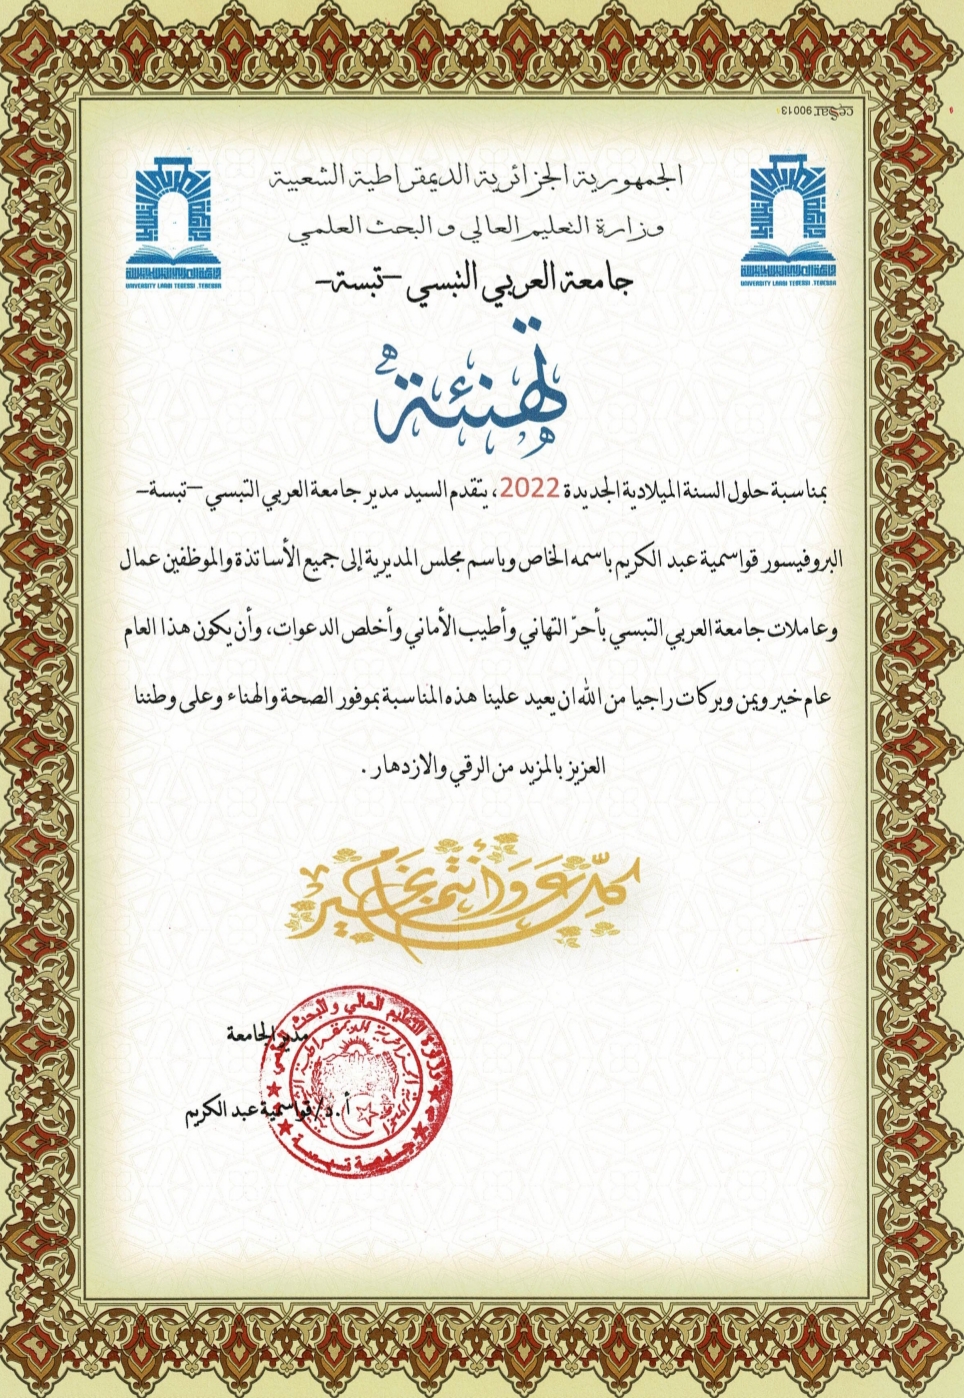 ceSar 90013
الجمهورية الجزائرية الديمقراطية الشعبية
وزارة التعليم العالي و البحث العلمي
جامعة العربي التبسي –تبسة–
UNIVERSITY LARBI TEBESSI .TEBESSA
UNIVERSITY LARBI TEBESSI .TEBESSA
تهنئة
بمناسبة حلول السنة الميلادية الجديدة 2022، يتقدم السيد مدير جامعة العربي التبسي –تبسة–
البروفيسور قواسمية عبد الكريم باسمه الخاص وباسم مجلس المديرية إلى جميع الأساتذة والموظفين عمال
وعاملات جامعة العربي التبسي بأحرّ التهاني وأطيب الأماني وأخلص الدعوات، وأن يكون هذا العام
عام خير ويمن وبركات راجيا من الله ان يعيد علينا هذه المناسبة بموفور الصحة والهناء وعلى وطننا
العزيز بالمزيد من الرقي والازدهار .
كل عام وأنتم بخير
مدير الجامعة
أ.د/ قواسمية عبد الكريم
وزارة التعليم العالي والبحث العلمي
الجمهورية الجزائرية الديمقراطية الشعبية
جامعة تبسة